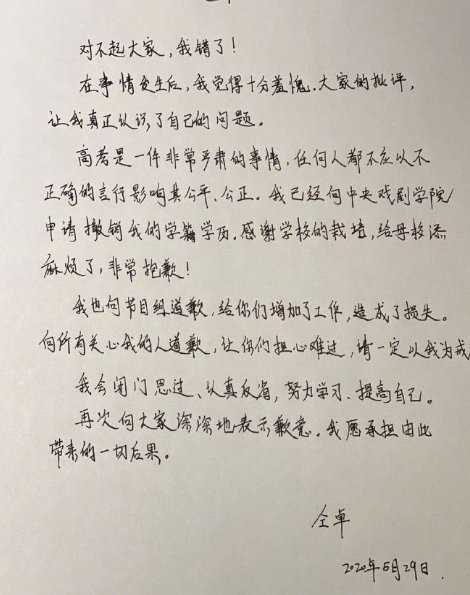 对不起大家，我错了！
在事情发生后，我觉得十分羞愧．大家的批评，
让我真正认识了自己的问题。
高考是一件非常严肃的事情，任何人都不应以不
正确的言行影响其公平、公正。我已经向中央戏剧学院
申请撤销我的学籍学历．感谢学校的栽培，给母校添
麻烦了，非常抱歉！
我也向节目组道歉，给你们增加了工作，造成了损失。
向所有关心我的人道歉，让你们担心难过，请一定以我为戒
我会闭门思过、认真反省，努力学习、提高自己。
再次向大家深深地表示歉意．我愿承担由此
带来的一切后果。
仝卓
2020年5月29日．